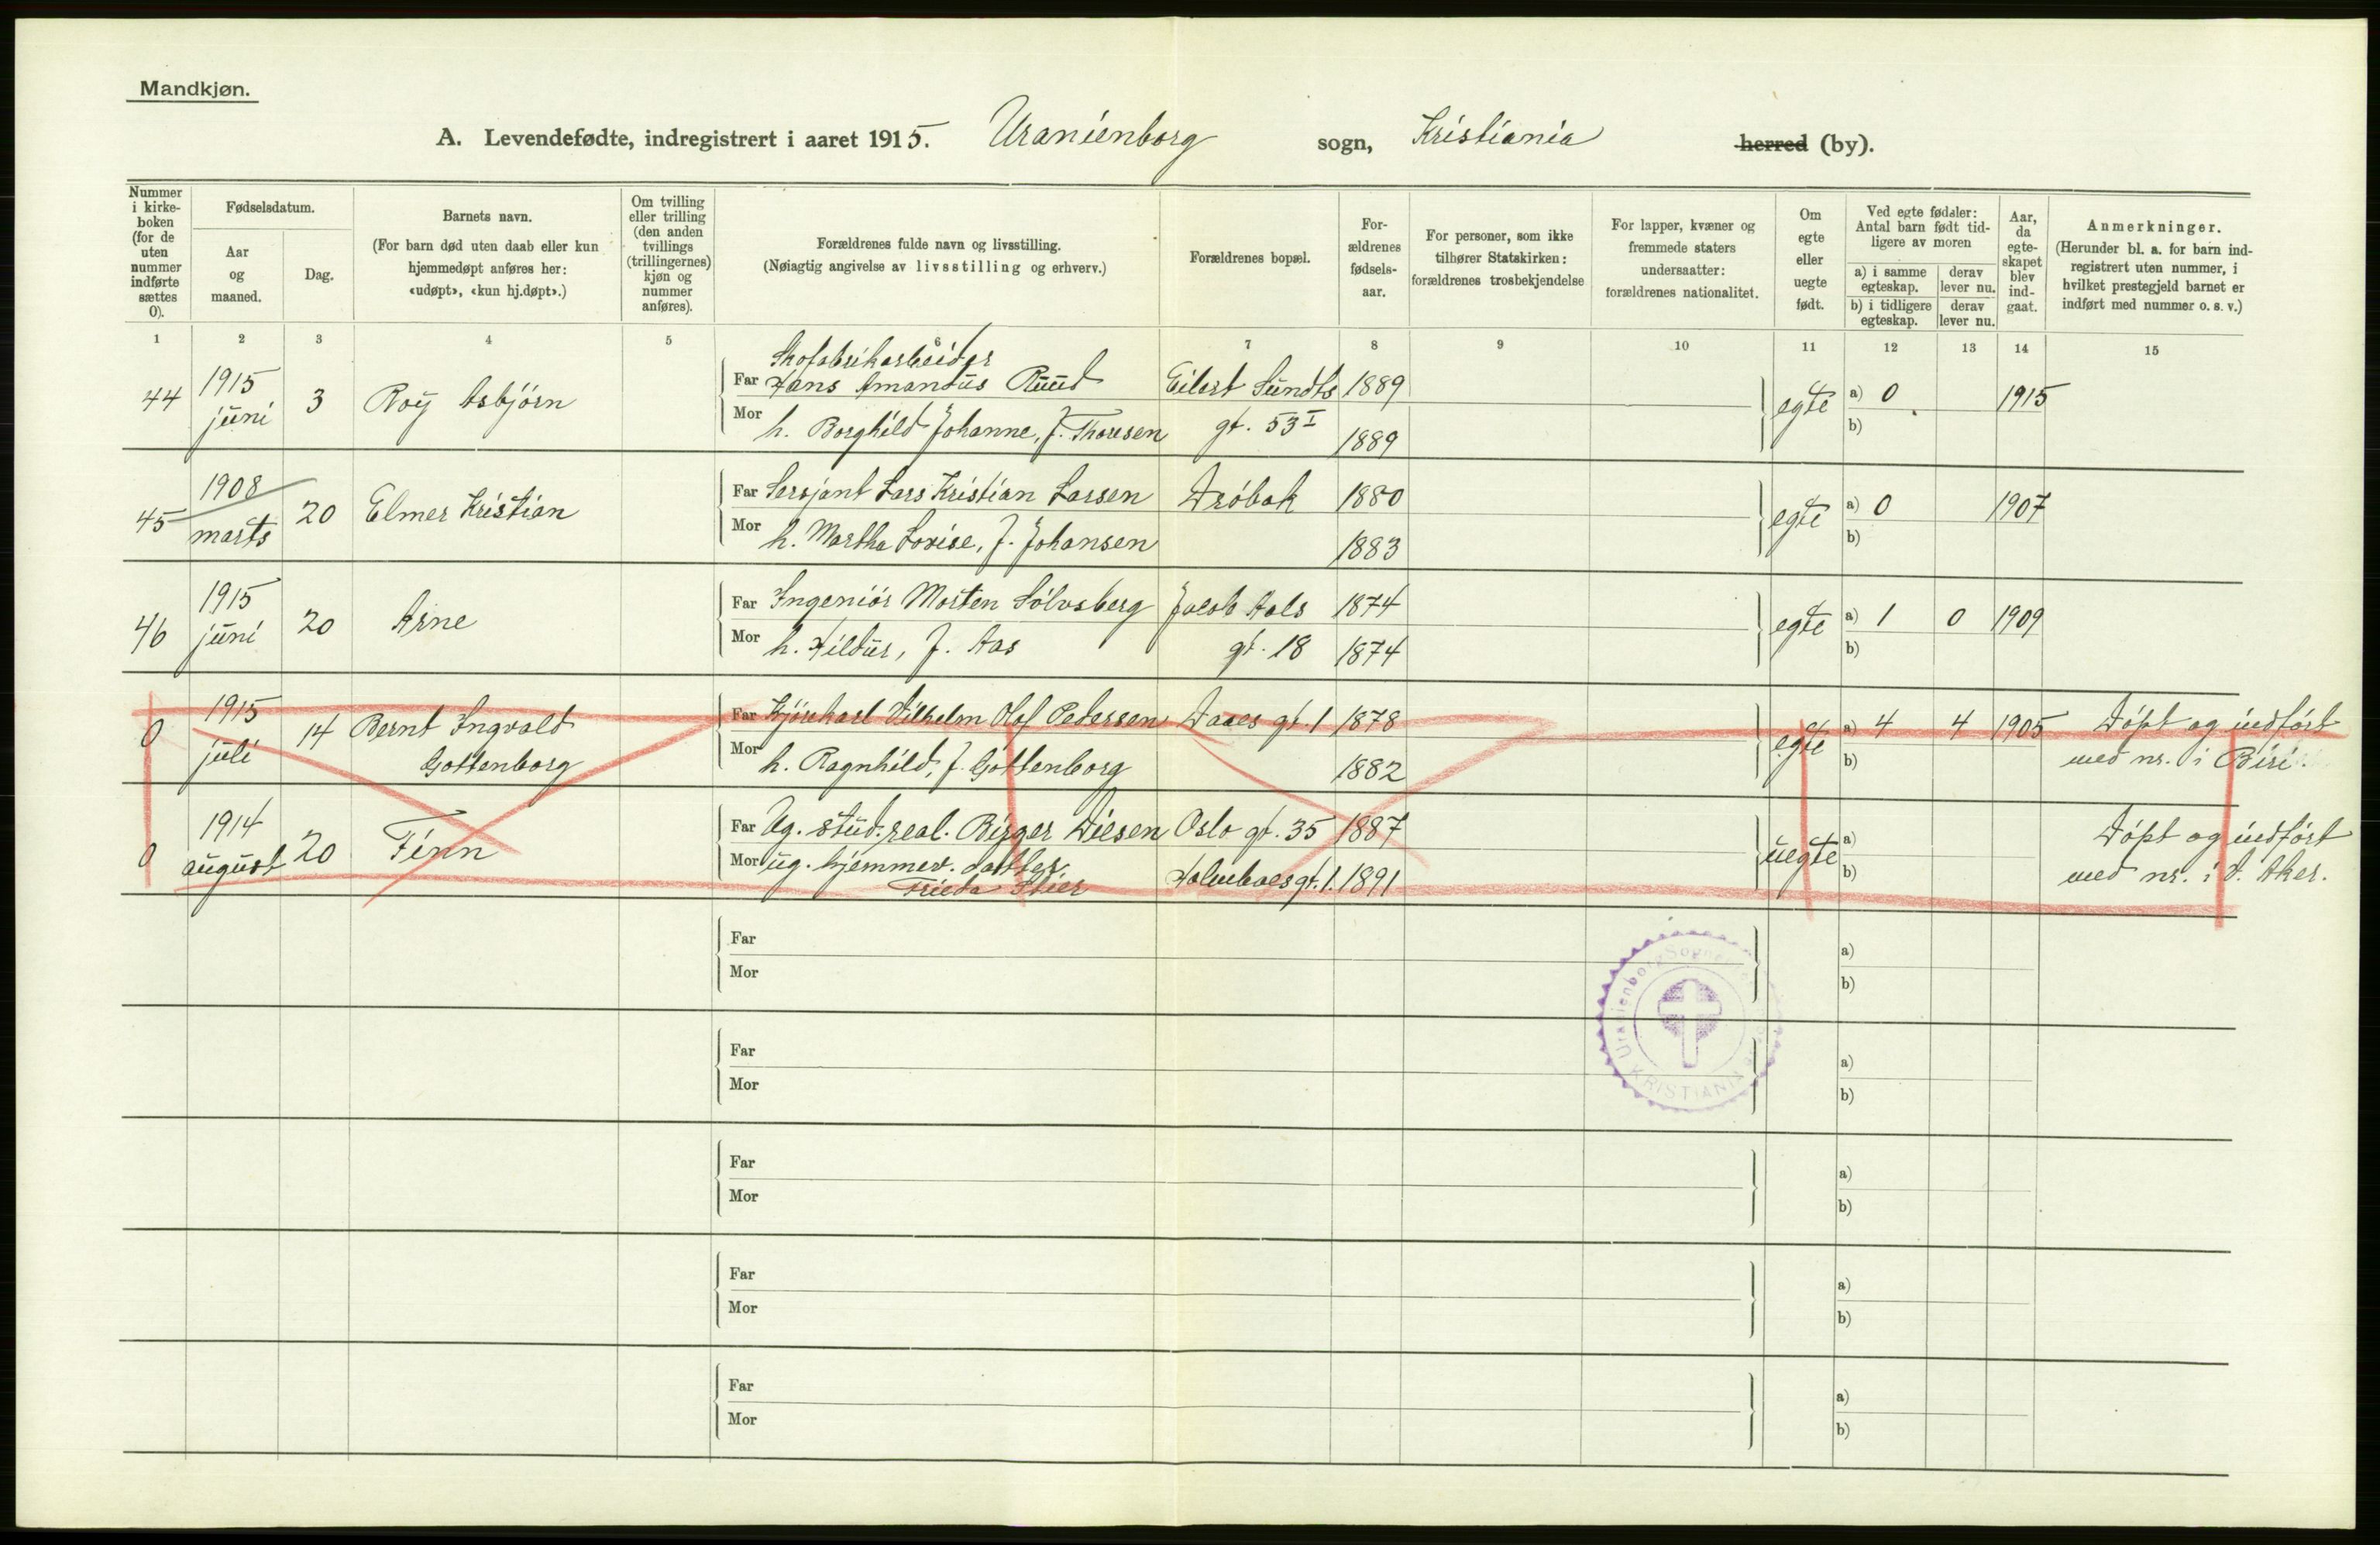 Mandkjøn.
A. Levendefødte, indregistrert i aaret 1915. Uranienborg sogn, Kristiania herred (by).
Nummer i kirke-boken (for de uten nummer indførte sættes 0).
Fødselsdatum.
Aar og maaned.
Dag.
Barnets navn.
(For barn død uten daab eller kun hjemmedøpt anføres her: «udøpt», «kun hj.døpt».)
Om tvilling eller trilling (den anden tvillings (trillingernes) kjøn og nummer anføres).
Forældrenes fulde navn og livsstilling.
(Nøiagtig angivelse av livsstilling og erhverv.)
Forældrenes bopæl.
For-ældrenes fødsels-aar.
For personer, som ikke tilhører Statskirken: forældrenes trosbekjendelse
For lapper, kvæner og fremmede staters undersaatter: forældrenes nationalitet.
Om egte eller uegte født.
Ved egte fødsler: Antal barn født tid-ligere av moren
a) i samme egteskap.
derav lever nu.
b) i tidligere egteskap.
derav lever nu.
Aar, da egte-skapet blev ind-gaat.
Anmerkninger.
(Herunder bl. a. for barn ind-registrert uten nummer, i hvilket prestegjeld barnet er indført med nummer o. s. v.)
1 2 3 4 5 6 7 8 9 10 11 12 13 14 15
Skofabrikarbeider
44 1915 juni 3 Roy Asbjörn Far Hans Amandus Ruud Eilert Sundts 1889 egte a) 0 1915
Mor h. Borghild Johanne, f. Thoresen gt. 53 I 1889 b)
45 1908 marts 20 Elmer Kristian Far Sersjant Lars Kristian Larsen Dröbak 1880 egte a) 0 1907
Mor h. Martha Lovise, f. Johansen 1883 b)
46 1915 juni 20 Arne Far Ingeniör Morten Sölvsberg Jacob Aals 1874 egte a) 1 0 1909
Mor h. Hildur, f. Aas gt. 18 1874 b)
0 1915 juli 14 Bernt Ingvald Far Kjörekarl Vilhelm Olof Pedersen Daaes gt. 1 1878 egte a) 4 4 1905 Döpt og indfört
Gottenborg Mor h. Ragnhild, f. Gottenborg 1882 b) med nr. i Biri.
0 1914 august 20 Finn Far Ug. stud. real. Birger Diesen Oslo gt. 35 1887 uegte a) Döpt og indfört
Mor ug. hjemmev. datter Holmboesgt. 1. 1891 b) med nr. i Ö. Aker.
Frieda
Far a)
Mor b)
Far a)
Mor b)
Far a)
Mor b)
Far a)
Mor b)
Far a)
Mor b)
Uranienborg
KRISTIANIA